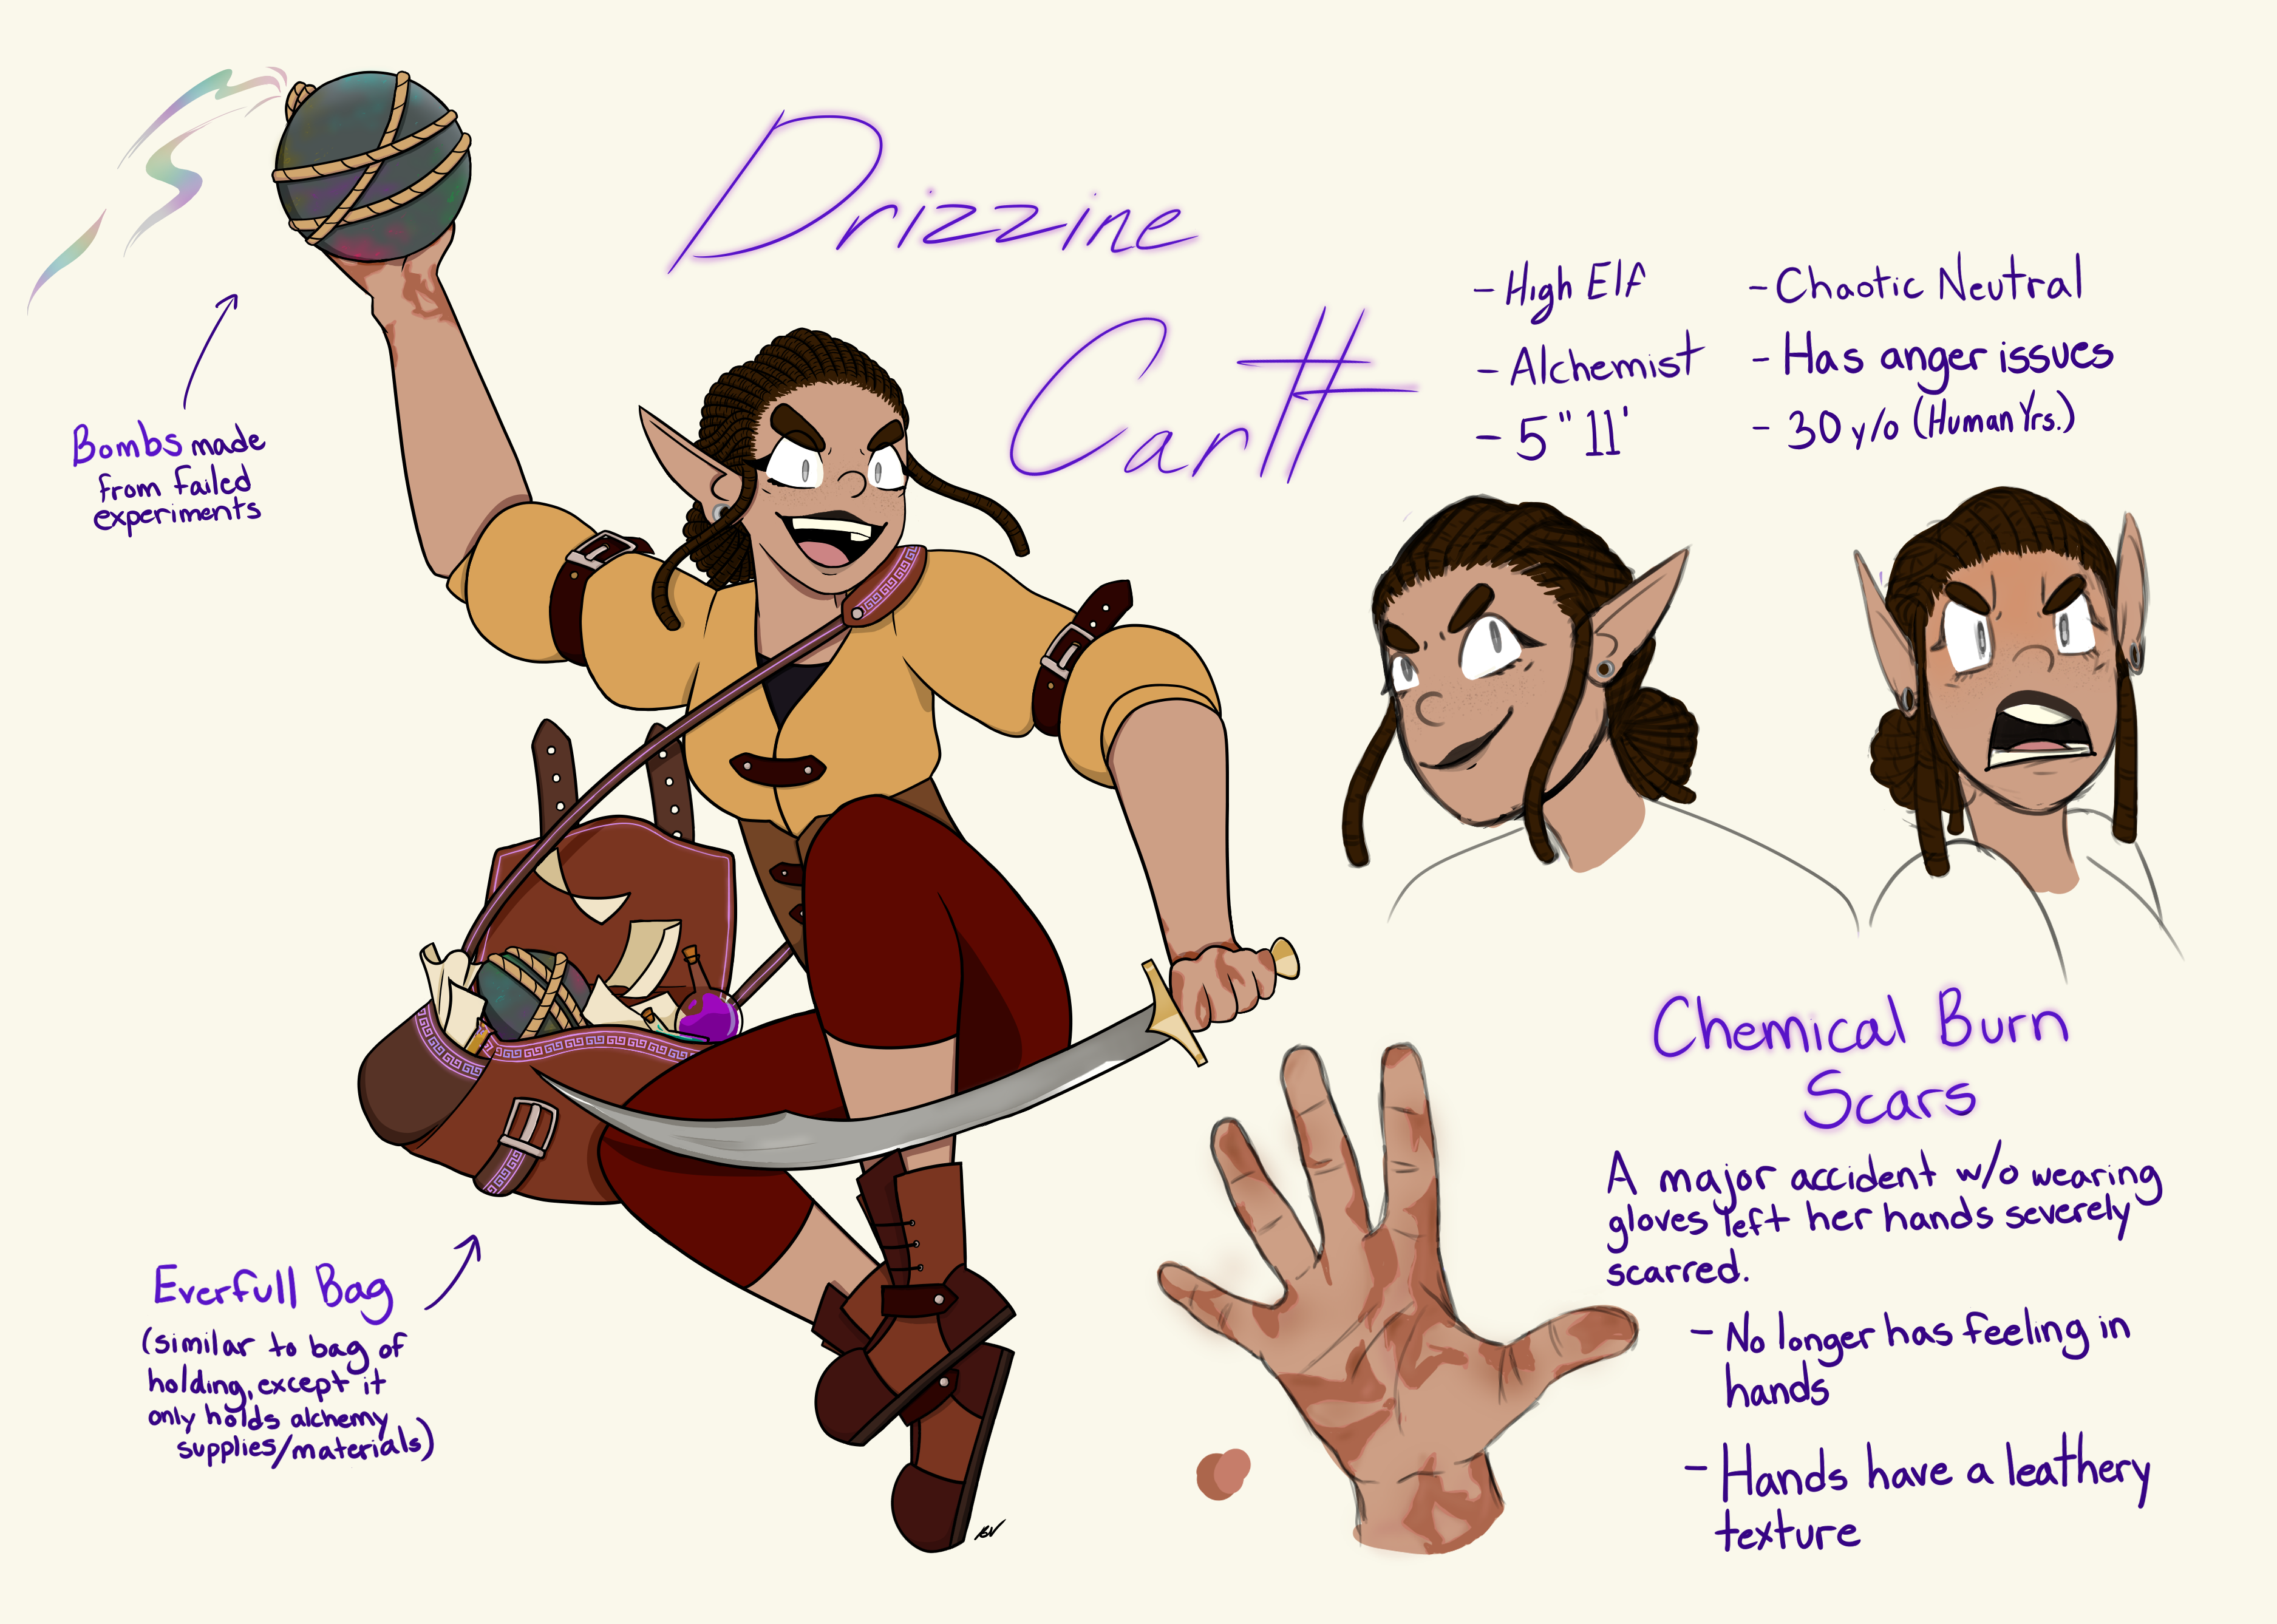 Drizzine
Cartt
- High Elf
- Alchemist
- 5"11'
- Chaotic Neutral
- Has anger issues
- 30 y/o (Human Yrs.)
Bombs made
from failed
experiments
Everfull Bag
(similar to bag of
holding, except it
only holds alchemy
supplies/materials)
Chemical Burn
Scars
A major accident w/o wearing
gloves left her hands severely
scarred.
- No longer has feeling in
hands
- Hands have a leathery
texture
BV